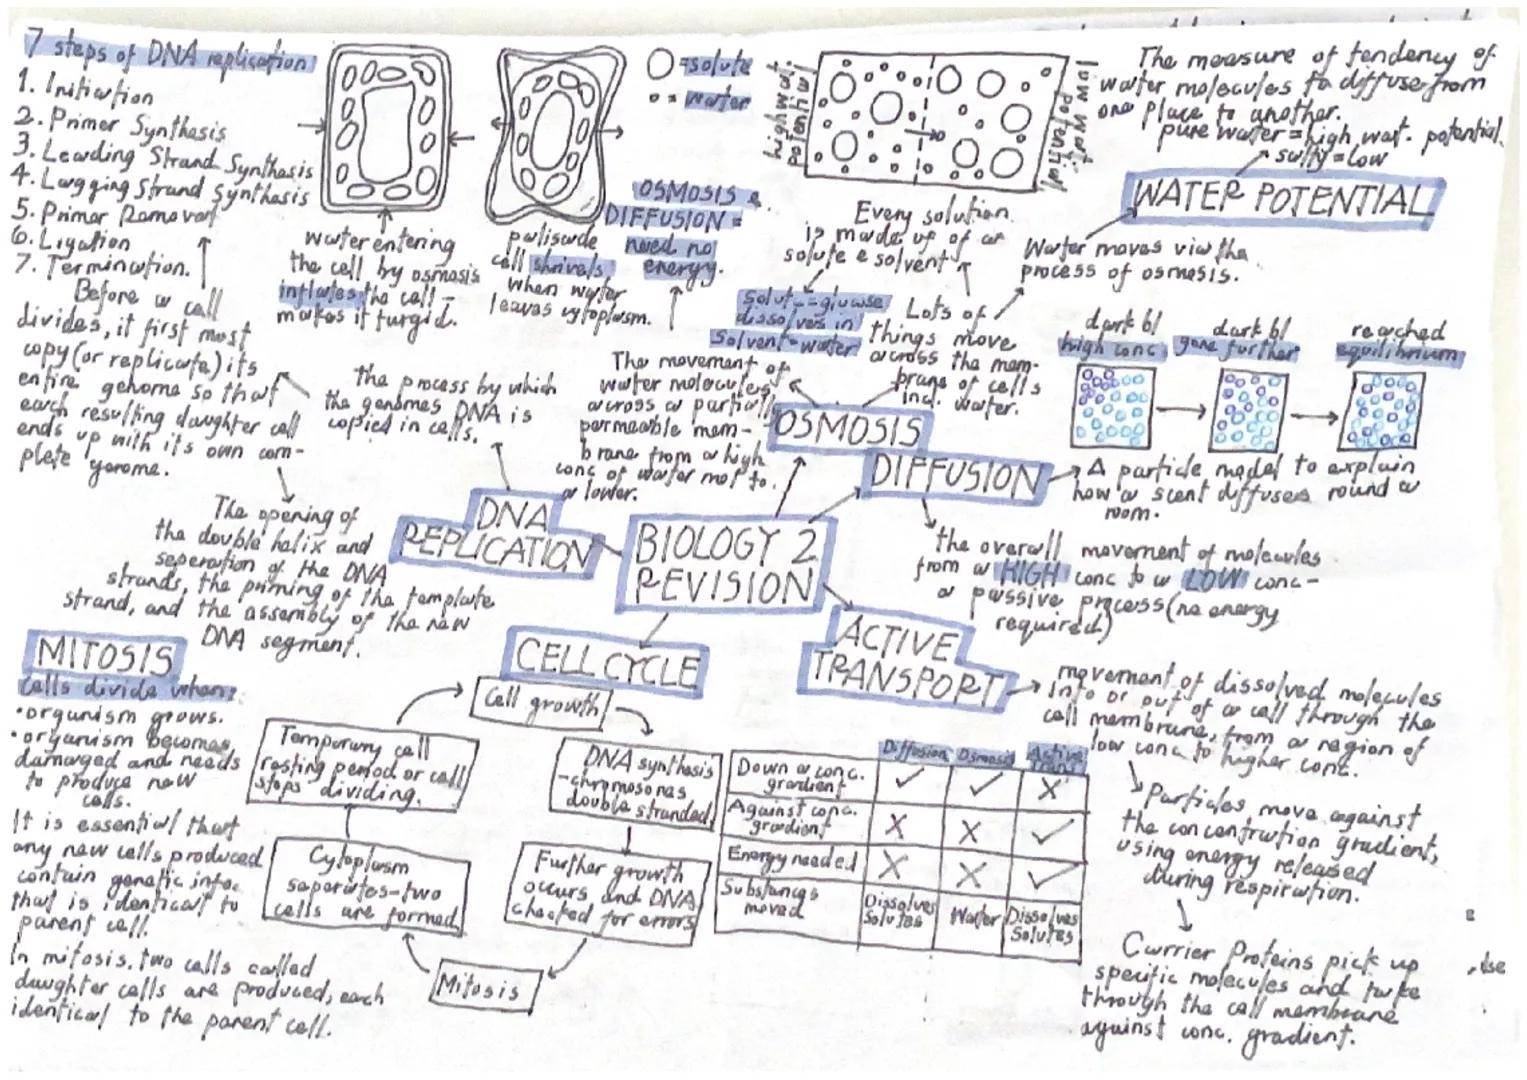 7 steps of DNA replication
1. Initiation
2. Primer Synthesis
3. Leading Strand Synthesis
4. Lagging Strand Synthesis
5. Primer Removal
6. Ligation
7. Termination.
Before a cell
divides, it first most
copy (or replicate) its
entire genome so that
each resulting daughter cell
ends up with its own com-
plete genome.
water entering
the cell by osmosis
inflates the cell -
makes it turgid.
palisade
cell shrivels
when water
leaves cytoplasm.
= solute
= water
OSMOSIS &
DIFFUSION =
need no
energy.
high wat.
potential
low wat.
potential
Every solution
is made up of a
solute & solvent
Solut = glucose
dissolves in
Solvent = water
Lots of
things move
across the mem-
brane of cells
incl. water.
The measure of tendency of
water molecules to diffuse from
one place to another.
pure water = high wat. potential.
salty = low
WATER POTENTIAL
Water moves via the
process of osmosis.
dark bl
high conc
dark bl
gone further
reached
equilibrium
The process by which
the genomes DNA is
copied in cells.
The movement of
water molecules
across a partially
permeable mem-
brane from a high
conc of water mol to
a lower.
OSMOSIS
DIFFUSION
A particle model to explain
how a scent diffuses round a
room.
the overall movement of molecules
from a HIGH conc to a LOW conc -
a passive process (no energy
required)
DNA
REPLICATION
BIOLOGY 2
REVISION
The opening of
the double helix and
seperation of the DNA
strands, the priming of the template
strand, and the assembly of the new
DNA segment.
MITOSIS
Cells divide when:
• organism grows.
• organism becomes
damaged and needs
to produce new
cells.
It is essential that
any new cells produced
contain genetic info.
that is identical to
parent cell.
In mitosis, two cells called
daughter cells are produced, each
identical to the parent cell.
CELL CYCLE
Cell growth
DNA synthesis
- chromosones
double stranded
Further growth
occurs and DNA
checked for errors
Mitosis
Cytoplasm
separates - two
cells are formed
Temporary cell
resting period or cell
stops dividing.
ACTIVE
TRANSPORT
movement of dissolved molecules
into or out of a cell through the
cell membrane, from a region of
low conc to higher conc.
Particles move against
the concentration gradient,
using energy released
during respiration.
Carrier Proteins pick up
specific molecules and take
through the cell membrane
against conc. gradient.
Diffusion Osmosis Active
Down a conc. gradient ✓ ✓ X
Against conc. gradient X X ✓
Energy needed X X ✓
Substances moved Dissolves Solutes Water Dissolves Solutes